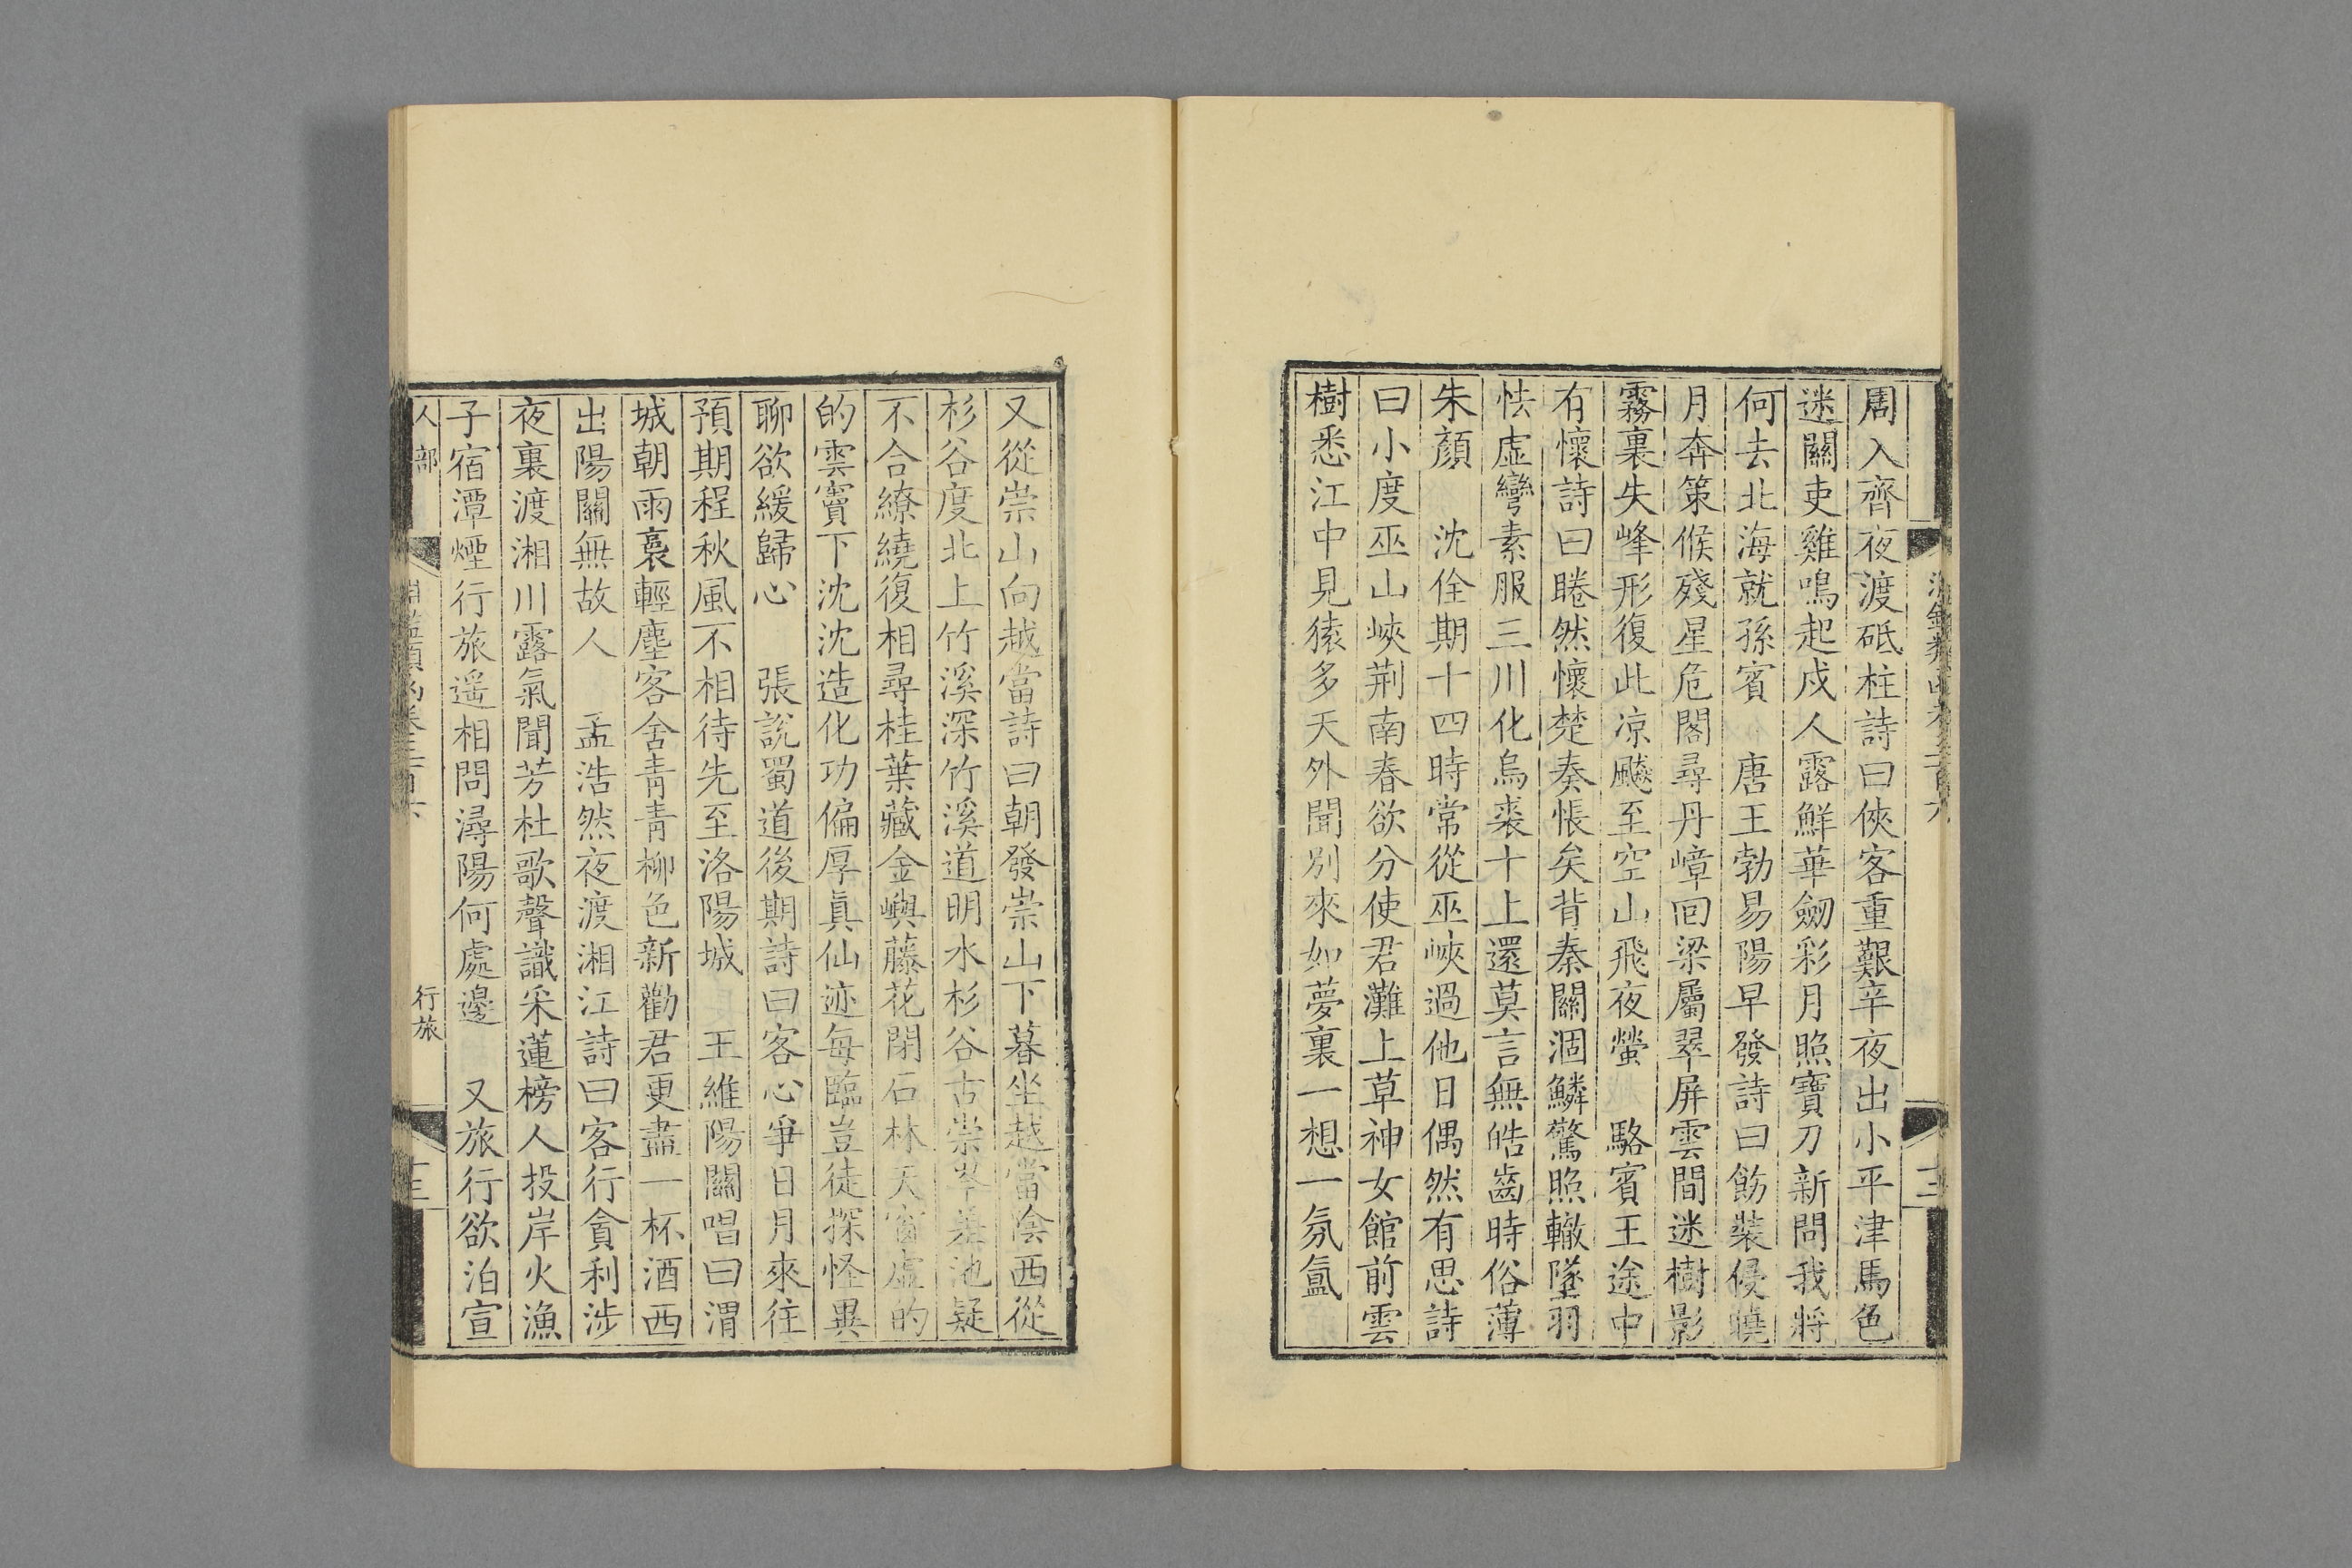 周入齊夜渡砥柱詩曰俠客重艱辛夜出小平津馬色
迷關吏雞鳴起戍人露鮮華劒彩月照寶刀新問我將
何去北海就孫賓　唐王勃易陽早發詩曰飭裝侵曉
月奔策候殘星危閣尋丹嶂回梁屬翠屏雲間迷樹影
霧裏失峰形復此凉飈至空山飛夜螢　駱賓王途中
有懷詩曰睠然懷楚奏悵矣背秦關涸鱗驚照轍墜羽
怯虛彎素服三川化烏裘十上還莫言無皓齒時俗薄
朱顏　沈佺期十四時常從巫峽過他日偶然有思詩
曰小度巫山峽荆南春欲分使君灘上草神女館前雲
樹悉江中見猿多天外聞別來如夢裏一想一氛氳
又從崇山向越當詩曰朝發崇山下暮坐越當陰西從
杉谷度北上竹溪深竹溪道明水杉谷古崇岑差池疑
不合繚繞復相尋桂葉藏金嶼藤花閉石林天窗虛的
的雲竇下沈沈造化功偏厚真仙迹每臨豈徒探怪異
聊欲緩歸心　張說蜀道後期詩曰客心爭日月來往
預期程秋風不相待先至洛陽城　王維陽關唱曰渭
城朝雨裛輕塵客舍青青柳色新勸君更盡一杯酒西
出陽關無故人　孟浩然夜渡湘江詩曰客行貪利涉
夜裏渡湘川露氣聞芳杜歌聲識采蓮榜人投岸火漁
子宿潭煙行旅遥相問潯陽何處邊　又旅行欲泊宣
人部
行旅